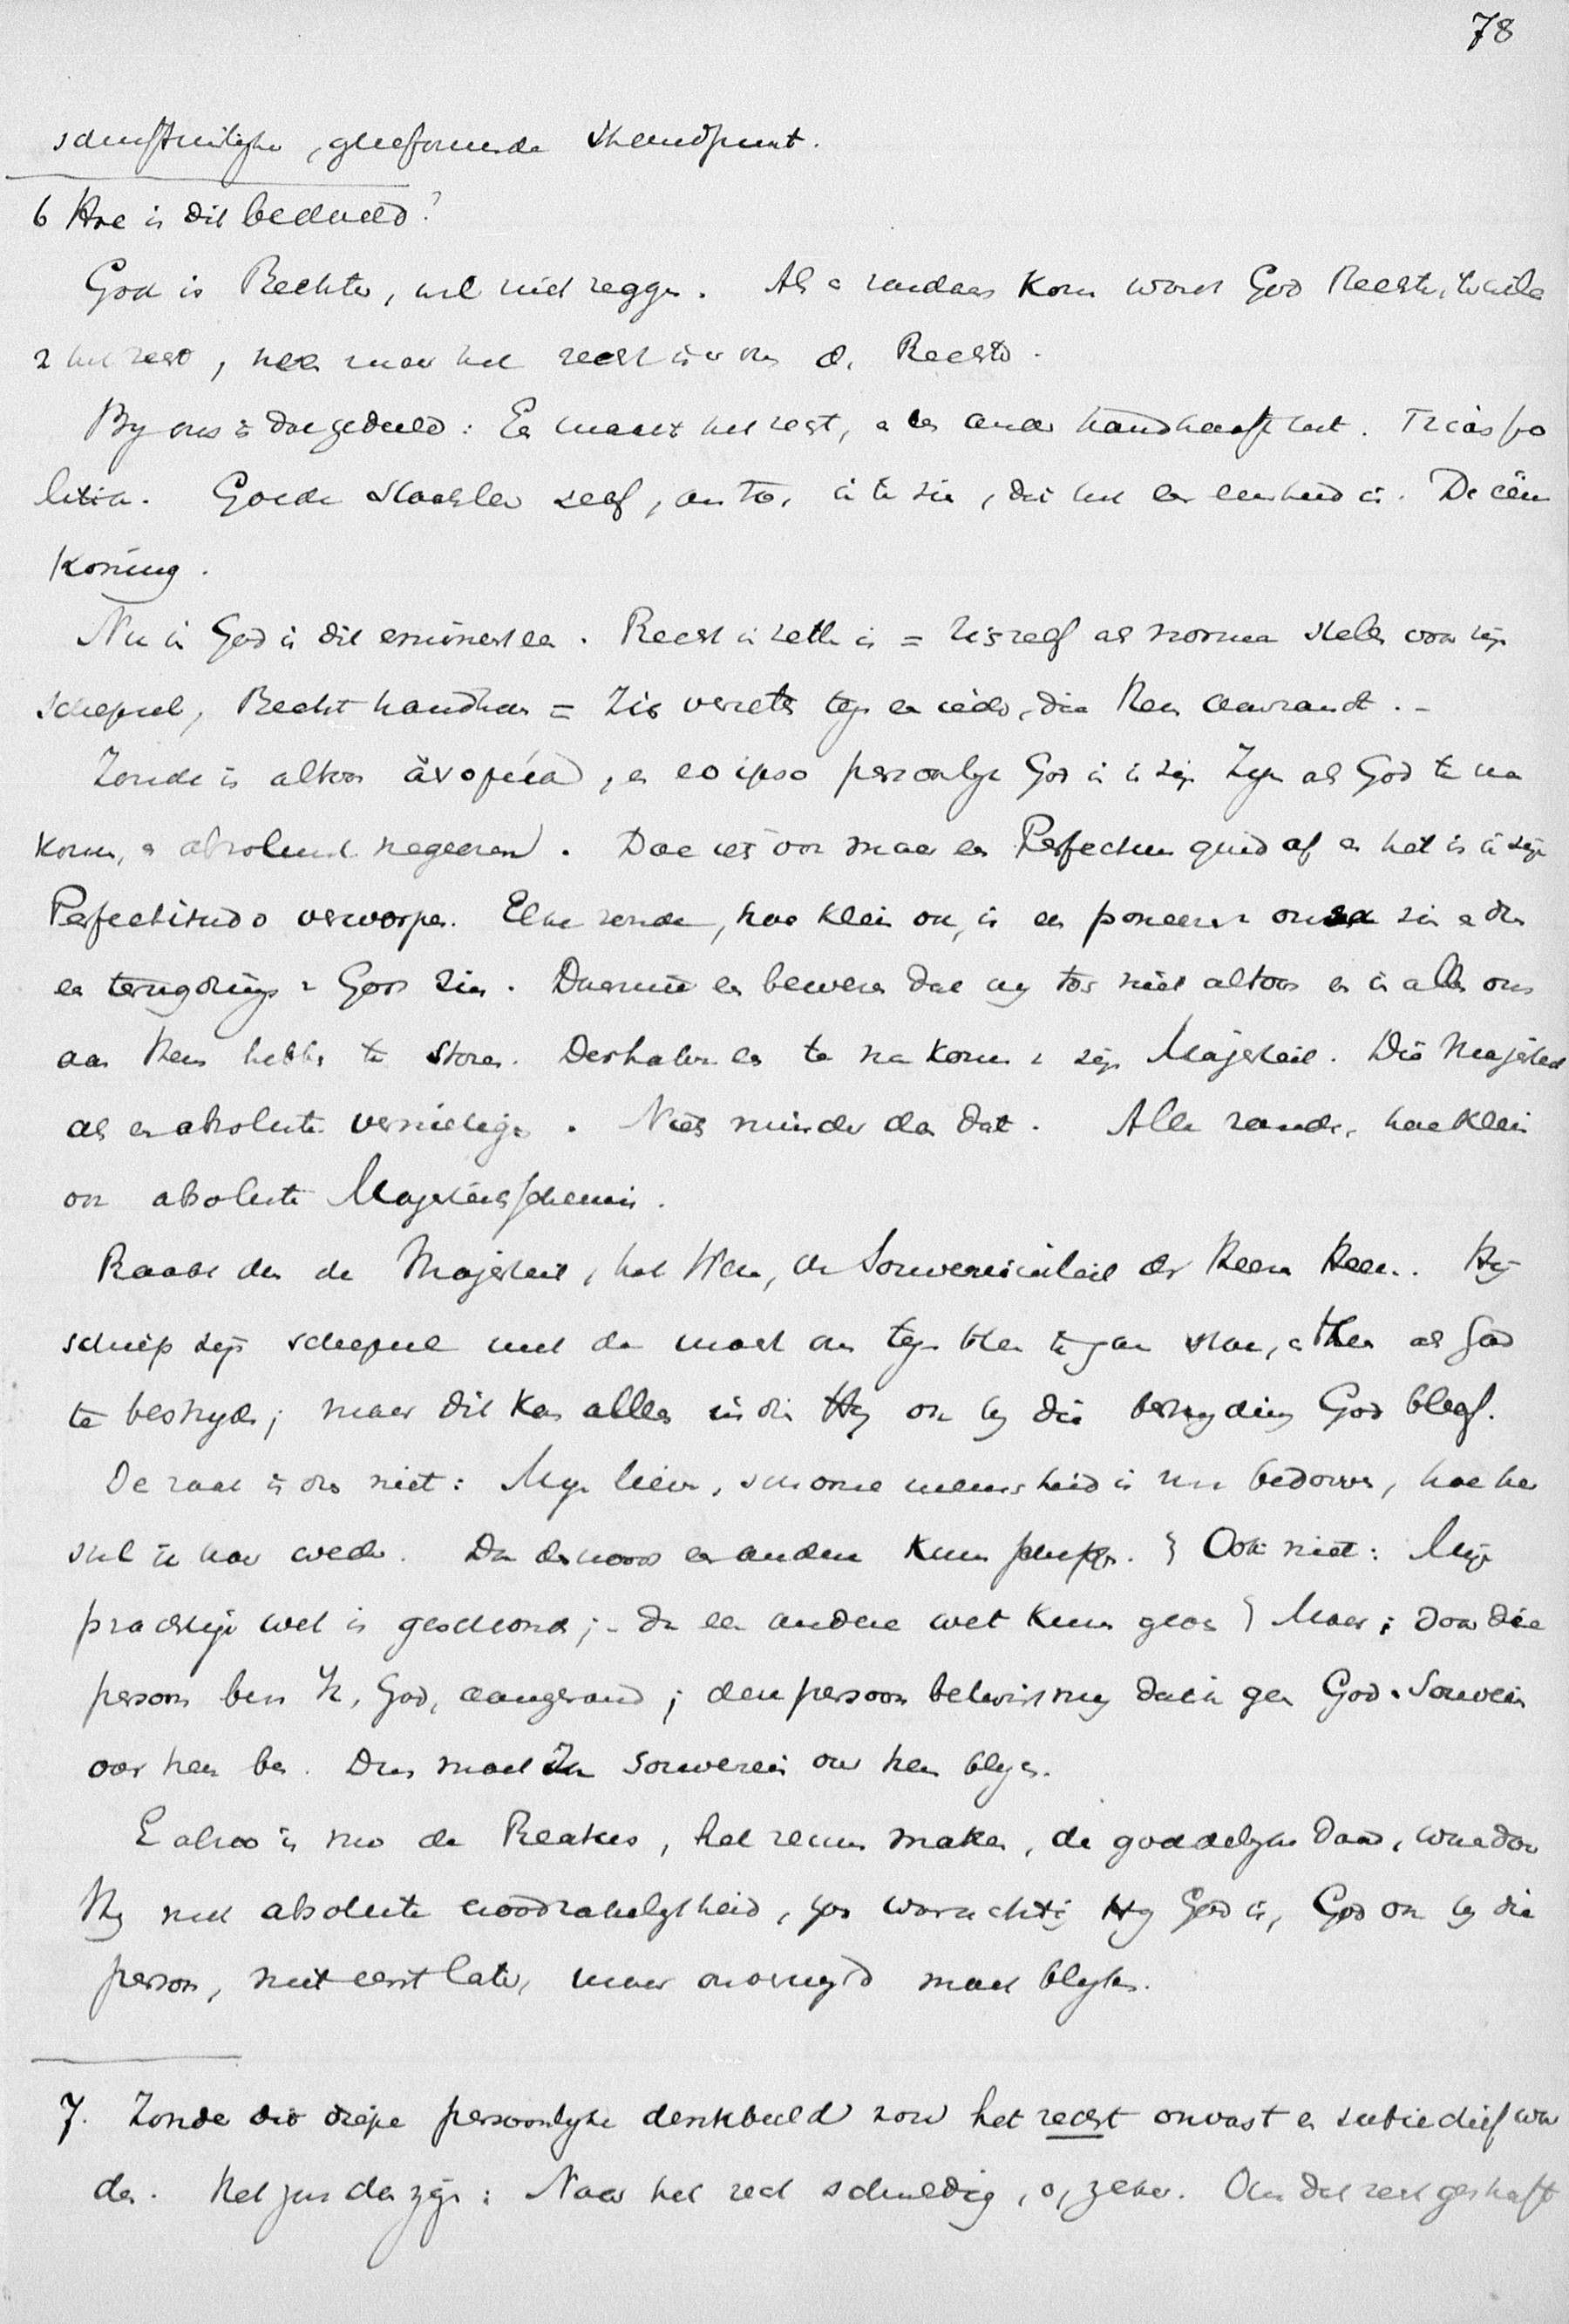 78
schriftuurlijke, gereformeerde standpunt.
6 Hoe is dit bedoeld?
God is Rechter, wil niet zeggen. Als a zondaar kom wordt God Rechter,
het recht, neen maar het recht is er om d. Rechter.
By ons is dat gedeeld: Een maakt het recht, een ander handhaaft het. Trias po
litica. Goede Staatsleer zelf, om toe, in te zien, dat het een eenheid is. De één
Koning.
Nu in God is dit eminent een. Recht in zette is = Zich zelf als norma stellen voor zijn
schepsel, Recht handhaven = Zich verzetten tegen een ieder, die Hem aanrandt. -
Zonde is altoos ἀνομία, en eo ipso persoonlyk God in zijn Zyn als God te na
komen, en absoluut negeeren. Doe iets van maar een Perfectum quid af en het is in zijn
Perfectitudo verworpen. Elke zonde, hoe klein ook, is een poneeren onzen zin en dus
een terugdringen Gods zin. Daarmee een beweren dat wy ons niet altoos en in alles ons
aan Hem hebben te storen. Derhalve een te na komen zijn Majesteit. Die Majesteit
als en absolute vernietigen. Niets minder dan dat. Alle zonde, hoe klein
ook absolute Majesteitsschennis.
Raakt dus de Majesteit, het Wezen, de Souvereiniteit des Heeren Heeren. Hij
schiep zijn schepsel met de macht om tegen Hem te gaan staan, en Hem als God
te bestryden; maar dit kan alleen indien Hy ook by die bestryding God bleef.
De zaak is dus niet: Myn lieve, schoone menschheid is nu bedorven, hoe her
stel ik haar weder. Dan dernoods een andere kunnen scheppen. } Ook niet: Mijn
prachtige wet is geschonden; - dan een andere wet kunnen geven } Maar: Door die
persoon ben Ik, God, aangerand; die persoon betwist my dat ik geen God Souverein
over hem ben. Dus moet Ik Souverein over hem blyven.
En alzoo is nu de Reatus, het rem maken, de goddelyke Daad, waardoor
Hy met absolute noodzakelykheid, zoo waarachtig Hy God is, God ook by die
persoon, niet eerst later, maar onverwyld moet blyken.
7. Zonder dit diepe persoonlyke denkbeeld zou het recht onvast en subiectief wor
den. Het zou dan zijn: Naar het recht schuldig, o, zeker. Om dat recht gestraft